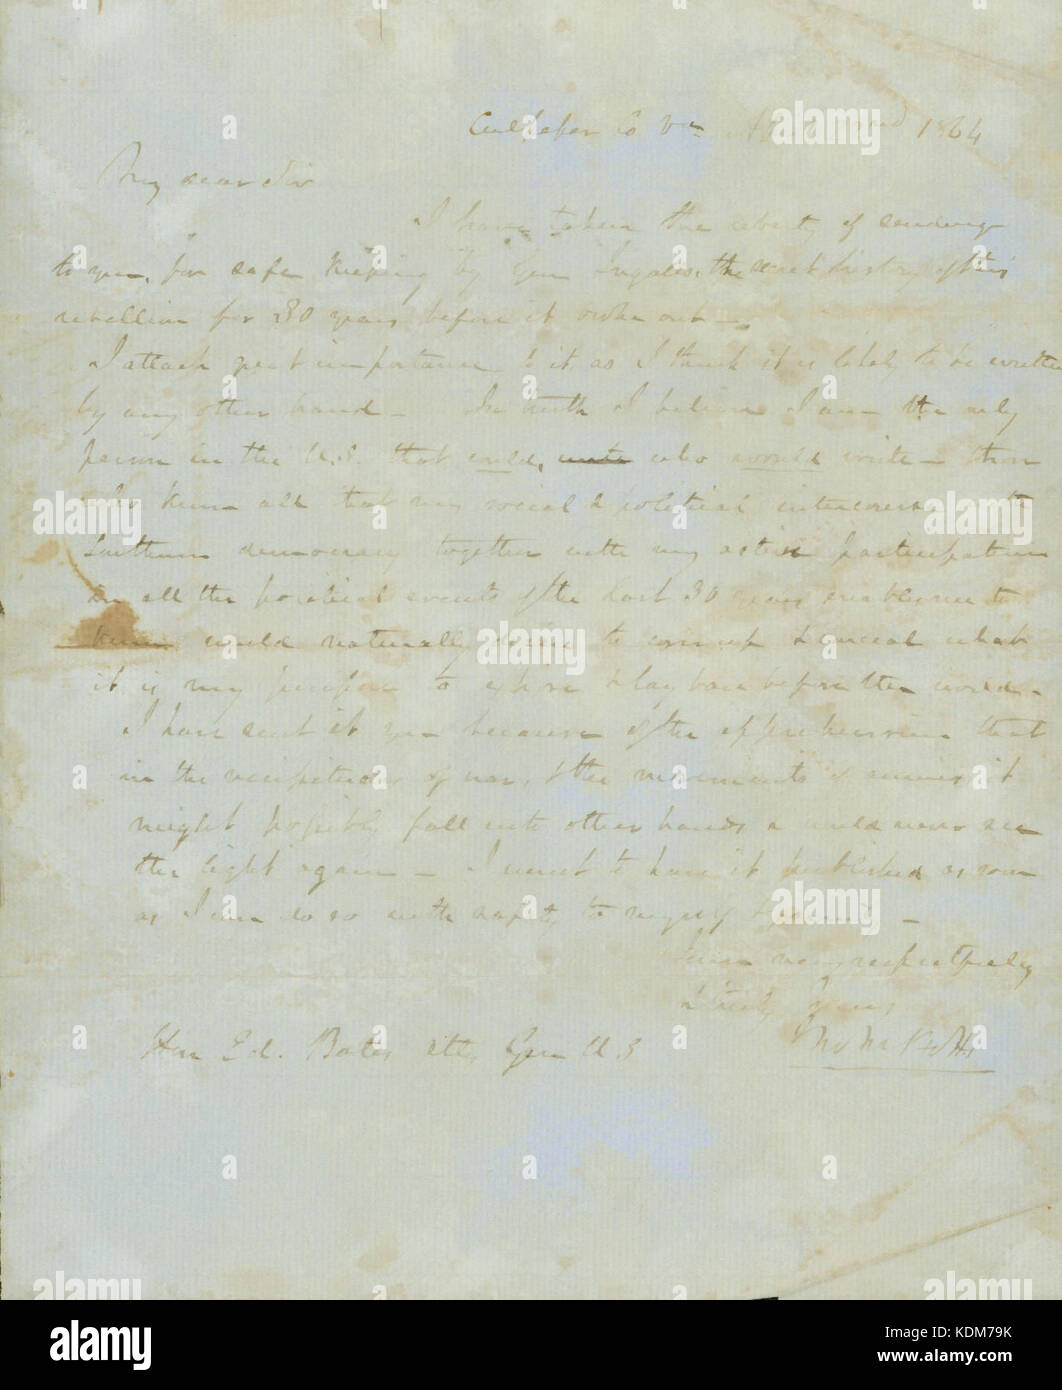 Culpeper Co Va April 1864
My dear Sir
I have taken the liberty of sending
to you, for safe keeping by Gen Ingalls, the secret history of this
rebellion for 30 years before it broke out —
I attach great importance to it as I think it is likely to be written
by any other hand — In truth I believe I am the only
person in the U.S. that could, who would write — those
who know all that my social & political intercourse with
Southern democracy together with my active participation
in all the political events of the last 30 years enables me to
know would naturally desire to cover up & conceal what
it is my purpose to expose & lay bare before the world —
I have sent it you because of the apprehension that
in the vicissitudes of war, & the movements of armies it
might possibly fall into other hands & would never see
the light again — I want to have it published as soon
as I can do so with safety to myself & —
I am very respectfully
& truly yours
Jno M Botts
Hon Ed. Bates Atty Gen U.S
alamy
Image ID: KDM79K
www.alamy.com